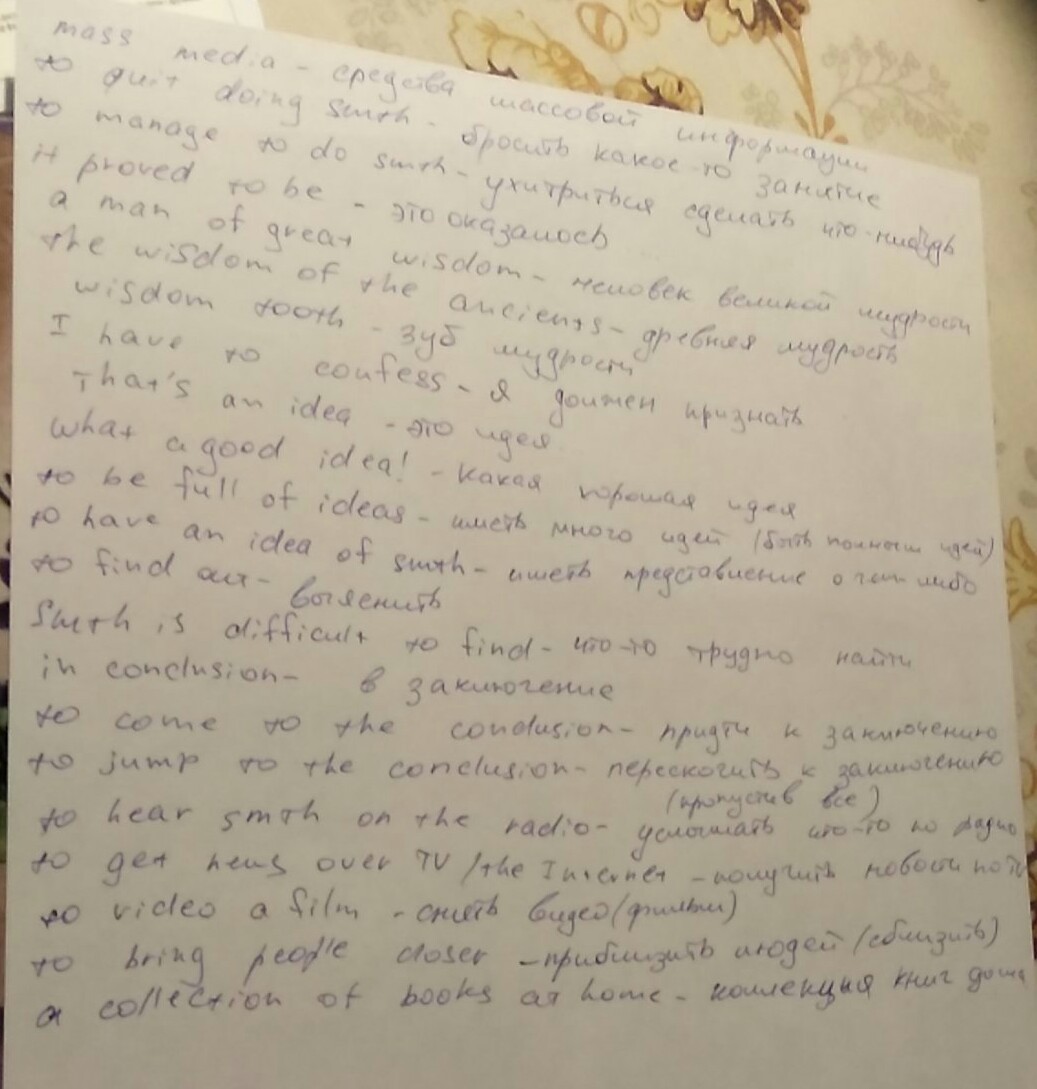 mass media - средства массовой информации
to quit doing smth - бросить какое-то занятие
to manage to do smth - ухитриться сделать что-нибудь
it proved to be - это оказалось
a man of great wisdom - человек великой мудрости
the wisdom of the ancients - древняя мудрость
wisdom tooth - зуб мудрости
I have to confess - я должен признать
That's an idea - это идея
What a good idea! - какая хорошая идея
to be full of ideas - иметь много идей (быть полным идей)
to have an idea of smth - иметь представление о чем-либо
to find out - выяснить
Smth is difficult to find - что-то трудно найти
in conclusion - в заключение
to come to the conclusion - придти к заключению
to jump to the conclusion - перескочить к заключению
(пропустив все)
to hear smth on the radio - услышать что-то по радио
to get news over TV / the Internet - получить новости по TV
to video a film - снять видео (фильм)
to bring people closer - приблизить людей (сблизить)
a collection of books at home - коллекция книг дома